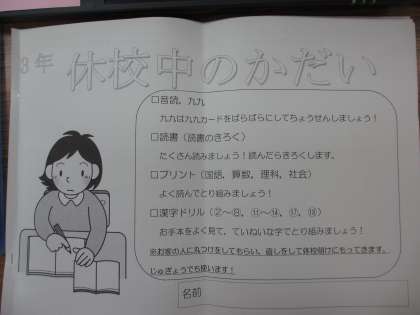 3年 休校中のかだい
□音読、九九
九九は九九カードをばらばらにしてちょうせんしましょう！
□読書（読書のきろく）
たくさん読みましょう！読んだらきろくします。
□プリント（国語、算数、理科、社会）
よく読んでとり組みましょう！
□漢字ドリル（②～⑧、⑪～⑭、⑰、⑱）
お手本をよく見て、ていねいな字でとり組みましょう！
※お家の人に丸つけをしてもらい、直しをして休校明けにもってきます。
じゅぎょうでも使います！
名前